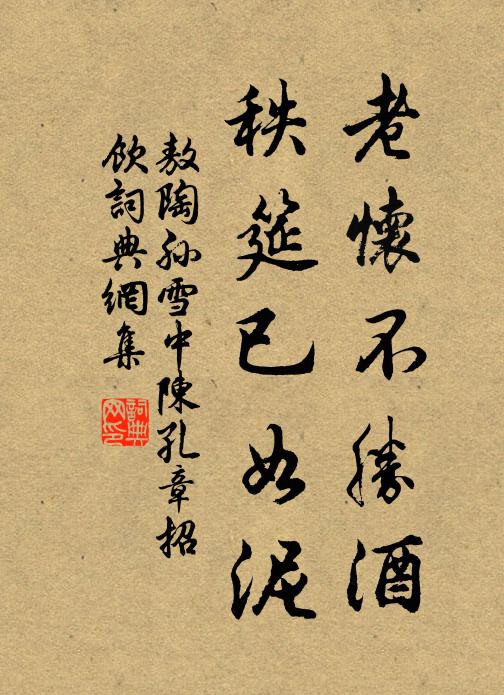 老懷不勝酒
秩筵已如泥
敖陶孫雪中陳孔章招
飲詞典網集
詞典网印